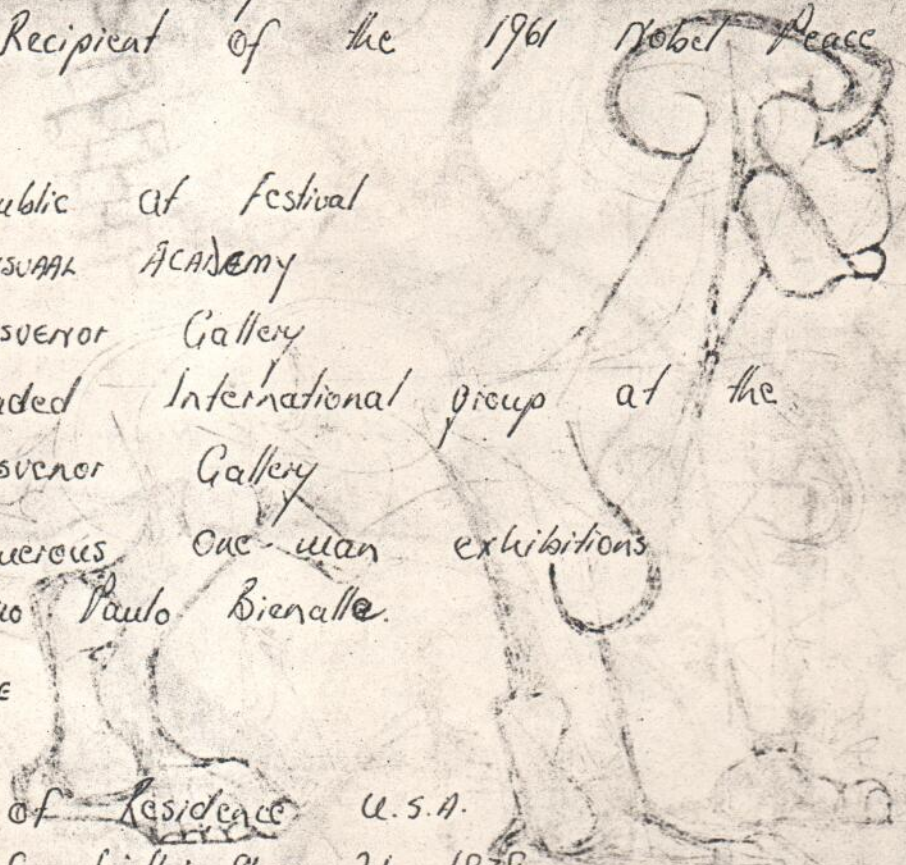 Recipient of the 1961 Nobel Peace
ublic at Festival
SVAAL ACADEMY
svenor Gallery
aded International group at the
svenor Gallery
uerous one-man exhibitions
ao Paulo Bienalle.
E
of Residence U.S.A.